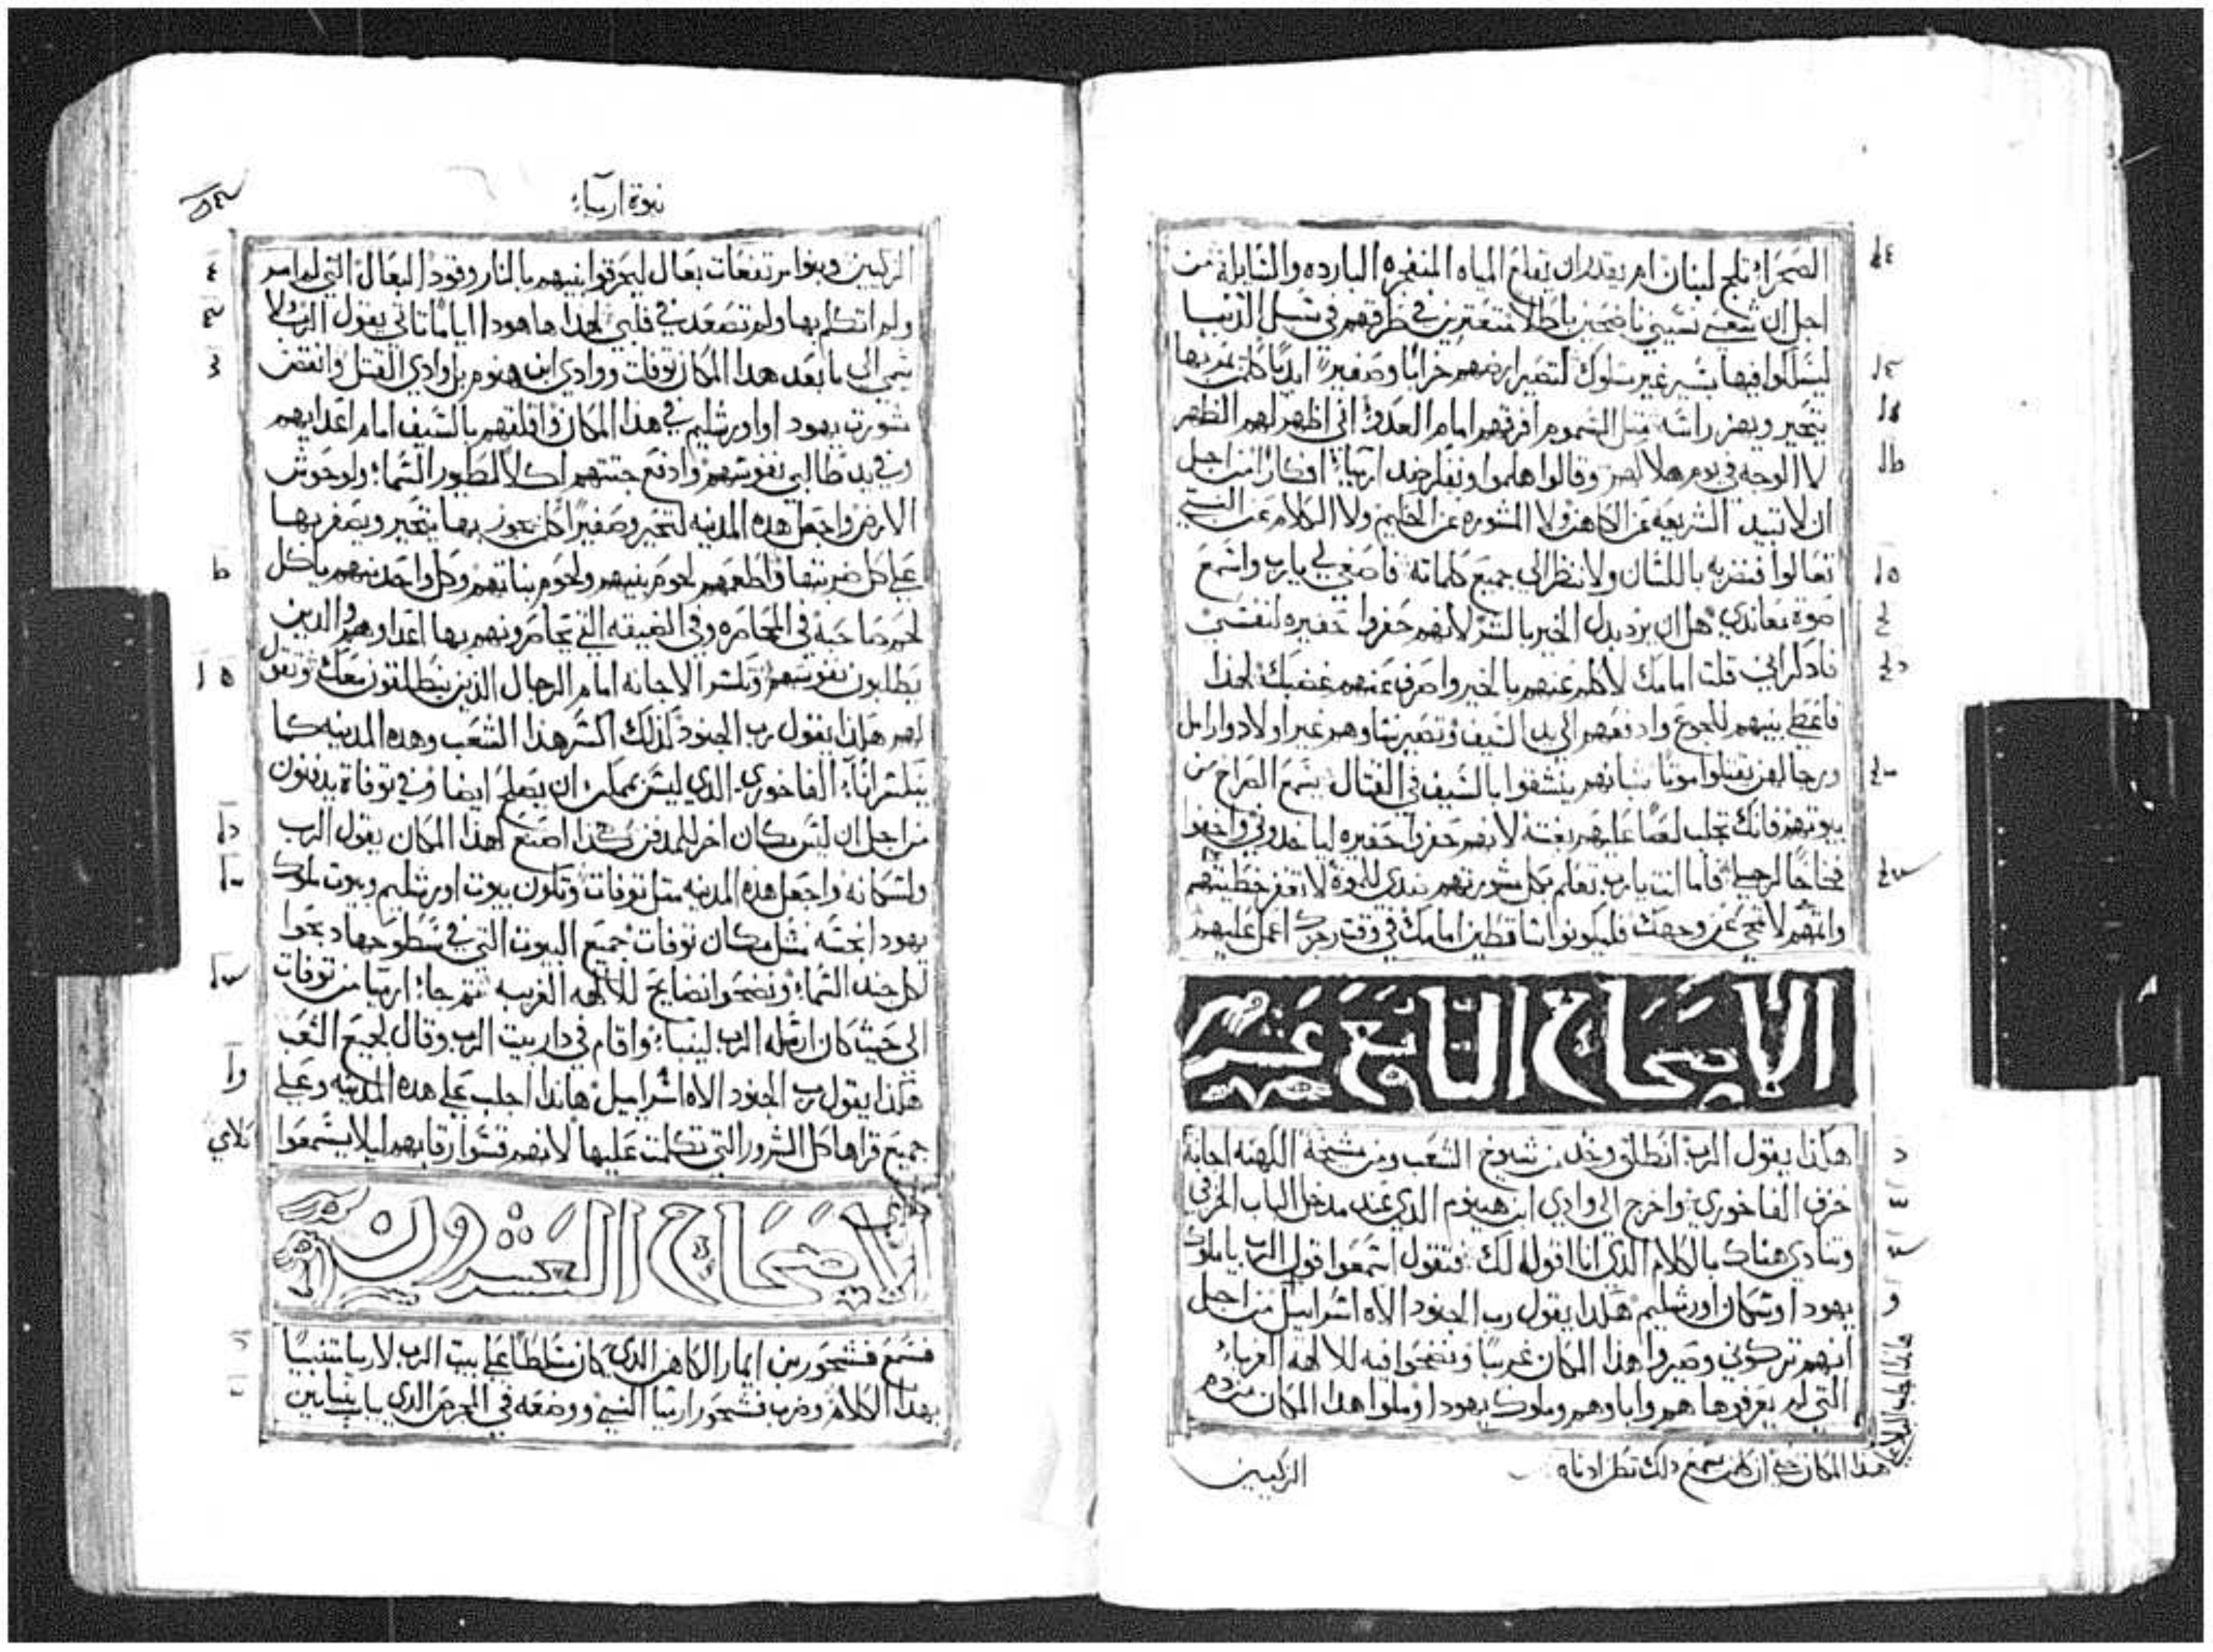 الصحراء ثلج لبنان ام يقدر ان تقلع المياه المنفجره البارده والسايله من
اجل ان شعبي نسيني ناضحين باطلا متعترين في طرقهم في سبل الدنيا
ليسلكوا فيها بسير غير مسلوك لتصير ارضهم خرابا وصفيرا ابديا كلمن يمر بها
يتحير ويهز راسه مثل السموم افرقهم امام العدو اني اظهر لهم الظهر
لا الوجه في يوم هلاكهم وقالوا هلموا ونفكر ضد ارميا افكارا من اجل
ان لا تبيد الشريعه عن الكاهن ولا المشوره عن الحكيم ولا الكلام عن النبي
تعالوا فنضربه باللسان ولا ننظر الى جميع كلماته فاصغي لي يا رب واسمع
صوة معاندي هل ان يرد بدل الخير بالشر لانهم حفروا حفيره لنفسي
فادكر اني قلت امامك لاكلم عنهم بالخير واصرف عنهم غضبك لهذا
فاعطي بنيهم للجوع وادفعهم الى يد السيف وتصير نساوهم غير اولاد وارامل
ورجالهن يقتلوا موتا شبانهم ينشفوا بالسيف في القتال يسمع الصراخ من
بيوتهم فانك تجلب لصا عليهم بغتة لانهم حفروا حفيره لياخدوني واخفوا
فخاخا لرجلي فاما انت يا رب تعلم بكل مشورتهم ضدي للموة لا تغفر خطيتهم
واثمهم لا يمحي عن وجهك فليكونوا ساقطين امامك في وقت رجزك اعمل عليهم
الاصحاح التاسع عشر
هكذا يقول الرب انطلق وخد من شيوخ الشعب ومن مشيخة الكهنه اجانة
خزف الفاخوري واخرج الى وادي ابن هينوم الدي عند مدخل الباب الخزفي
وتنادي هناك بالكلام الذي انا اقوله لك فتقول اسمعوا قول الرب يا ملوك
يهودا وسكان اورشليم هكدا يقول رب الجنود الاه اسراييل من اجل
انهم تركوني وصيروا هذا المكان غريبا ونضحوا فيه للالهه الغربا
التي لم يعرفوها هم واباوهم وملوك يهودا وملوا هدا المكان من دم
هذا المكان حتى ان كلمن يسمع دلك تطن ادناه
الزكيين
نبوة ارمياء
الزكيين وبنوا مرتفعات بعال ليحرقوا بنيهم بالنار وقود البعال التي لم امر
ولم اتكلم بها ولم تصعد في قلبي لهدا ها هودا اياما تاتي يقول الرب ولا
يسمي الى ما بعد هدا المكان توفات ووادي ابن هنوم بل وادي القتل وانقض
مشورت يهودا واورشليم في هذا المكان واقلقهم بالسيف امام اعدايهم
وفي يد طالبي نفوسهم وادفع جتتهم اكلا لطيور السماء ولوحوش
الارض واجعل هده المدينه لتحير وصفيرا كلمن يجوز بها يتحير ويصفر بها
على كل ضربتها واطعمهم لحوم بنيهم ولحوم بناتهم وكل واحد منهم ياكل
لحم صاحبة في المحاصره وفي الضيقه التي يحاصرونهم بها اعداوهم والدين
يطلبون نفوسهم وتكسر الاجانه امام الرجال الذين ينطلقون معك وتقول
لهم هكذا يقول رب الجنود كذلك اكسر هذا الشعب وهده المدينه كما
ينكسر اناء الفاخوري الدي ليس يمكن ان يصلح ايضا وفي توفاة يدفنون
من اجل ان ليس مكان اخر للمدفن هكذا اصنع لهذا المكان يقول الرب
ولسكانه واجعل هذه المدينه مثل توفات وتكون بيوت اورشليم وبيوت ملوك
يهودا نجسه مثل مكان توفات جميع البيوت التي في سطوحها دبحوا
لكل جند السماء ونضحوا نضايح للالهه الغريبه ثم جاء ارميا من توفات
الى حيث كان ارسله الرب ليتنبا واقام في دار بيت الرب وقال لجميع الشعب
هكذا يقول رب الجنود الاه اسراييل هانذا اجلب على هده المدينه وعلى
جميع قراها كل الشرور التي تكلمت عليها لانهم قسوا رقابهم ليلا يسمعوا
كلامي
الاصحاح العشرون
فسمع فشحور بن ايمار الكاهن الدي كان مسلطا على بيت الرب لارميا متنبيا
بهدا الكلام وضرب فشحور ارميا النبي ووضعه في المحرص الدي بباب بنيامين